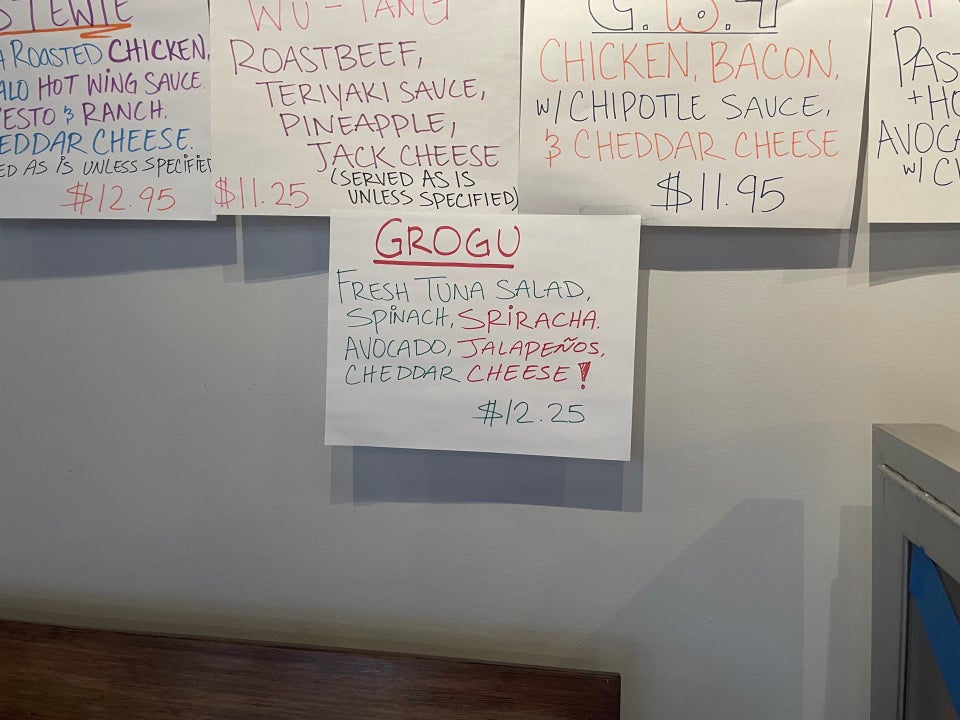 STEWIE
ROASTED CHICKEN,
HOT WING SAUCE.
& RANCH.
CHEDDAR CHEESE.
AS IS UNLESS SPECIFIED
$12.95
WU-TANG
ROASTBEEF,
TERIYAKI SAUCE,
PINEAPPLE,
JACK CHEESE
(SERVED AS IS
UNLESS SPECIFIED)
$11.25
CHICKEN, BACON,
W/ CHIPOTLE SAUCE,
& CHEDDAR CHEESE
$11.95
AVOCA
W/ C
GROGU
FRESH TUNA SALAD,
SPINACH, SRIRACHA.
AVOCADO, JALAPEÑOS,
CHEDDAR CHEESE!
$12.25